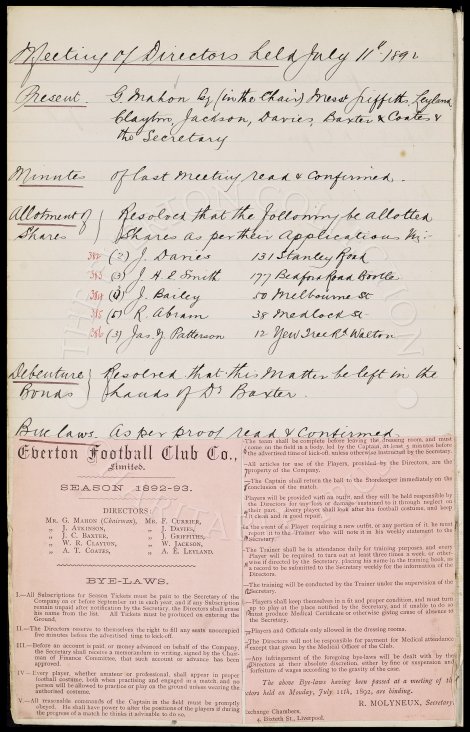 Meeting of Directors held July 11th 1892
Present. G. Mahon Esq (in the Chair) Messrs Griffiths, Leyland
Clayton, Jackson, Davies, Baxter & Coates &
the Secretary
Minutes of last Meeting read & Confirmed.
Allotment of Shares } Resolved that the following be allotted
Shares as per their Applications viz:-
382 (2) J. Davies 131 Stanley Road
383 (3) J. H. E. Smith 177 Bedford Road Bootle
384 J. Bailey 50 Melbourne St
385 (5) R. Abram 38 Medlock St
386 (3) Jas Y. Patterson 12 Yew Tree Rd Walton
Debenture Bonds } Resolved that this Matter be left in the
hands of Dr Baxter.
Bye laws. As per proof read & Confirmed.
Everton Football Club Co.,
Limited.
SEASON 1892-93.
DIRECTORS:
Mr. G. MAHON (Chairman), Mr. F. CURRIER,
„ J. ATKINSON, „ J. DAVIES,
„ J. C. BAXTER, „ J. GRIFFITHS,
„ W. R. CLAYTON, „ W. JACKSON,
„ A. T. COATES, „ A. E. LEYLAND.
BYE-LAWS.
I.—All Subscriptions for Season Tickets must be paid to the Secretary of
the Company on or before 1st September in each year, and if any Subscriptions
remain unpaid after notification by the Secretary, the Directors shall erase
his name from the list. All Tickets must be produced on entering the
Ground.
II.—The Directors reserve to themselves the right to fill any seats unoccupied
five minutes before the advertised time to kick-off.
III.—Before an account is paid, or money advanced on behalf of the Company,
the Secretary shall receive a memorandum in writing, signed by the Chair-
man of Finance Committee, that such account or advance has been
approved.
IV.—Every player, whether amateur or professional, shall appear in proper
football costume, both when practising and engaged in a match and no
person will be allowed to practice or play on the ground unless wearing the
authorised costume.
V.—All reasonable commands of the Captain in the field must be promptly
obeyed. He shall have power to alter the positions of the players if during
the progress of a match he thinks it advisable to do so.
The team shall be complete before leaving the dressing room, and must
come on the field in a body, led by the Captain, at least 5 minutes before
the advertised time of kick-off, unless otherwise instructed by the Secretary.
—All articles for use of the Players, provided by the Directors, are the
property of the Company.
—The Captain shall return the ball to the Storekeeper immediately on the
conclusion of the match.
Players will be provided with an outfit, and they will be held responsible by
the Directors for any loss or damage sustained to it through neglect on
their part. Every players shall look after his football costume, and keep
it clean and in good repair.
the event of a Player requiring a new outfit, or any portion of it, he must
report it to the Trainer who will note it in his weekly statement to the
Secretary.
The Trainer shall be in attendance daily for training purposes, and every
Player will be required to turn out at least three times a week, or other-
wise if directed by the Secretary, placing his name in the training book, as
a record to be submitted to the Secretary weekly for the information of the
Directors.
—The training will be conducted by the Trainer under the supervision of the
Secretary.
—Players shall keep themselves in a fit and proper condition, and must turn
up to play at the place notified by the Secretary, and if unable to do so
must produce Medical Certificate or otherwise giving cause of absence to
the Secretary.
Players and Officials only allowed in the dressing rooms.
The Directors will not be responsible for payment for Medical attendance
except that given by the Medical Officer of the Club.
—Any infringement of the foregoing bye-laws will be dealt with by the
Directors at their absolute discretion, either by fine or suspension and
forfeiture of wages according to the gravity of the case.
The above Bye-laws having been passed at a meeting of the
ctors held on Monday, July 11th, 1892, are binding.
R. MOLYNEUX, Secretary.
Exchange Chambers,
4, Bixteth St., Liverpool.